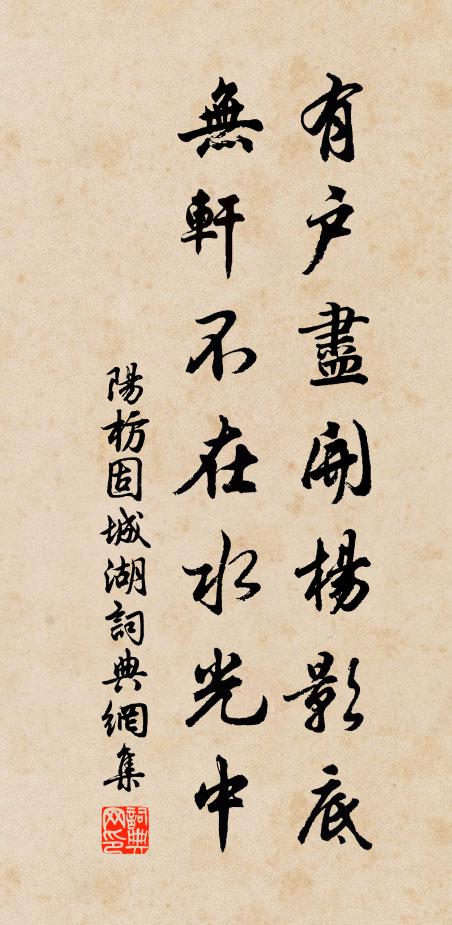 有户盡開楊影底
無軒不在水光中
陽枋固城湖詞典網集
詞典网印